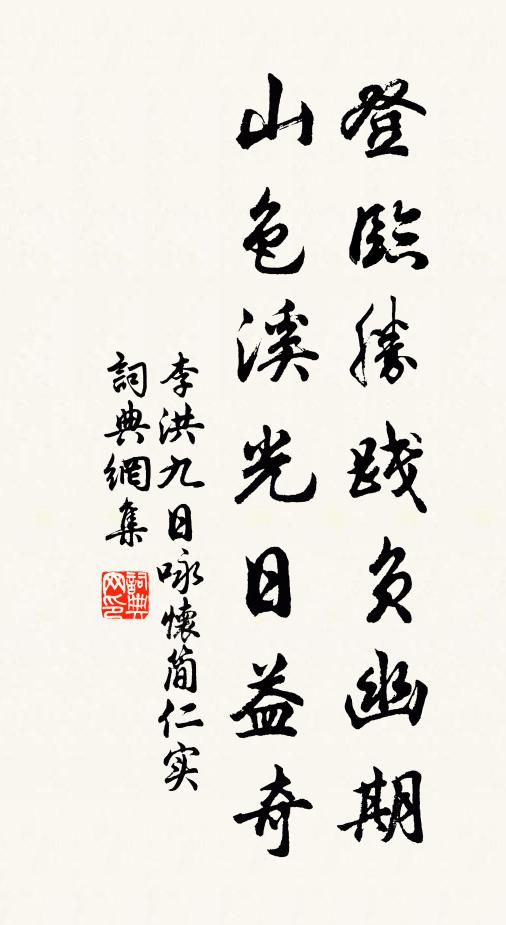 登臨勝踐负幽期
山色溪光日益奇
李洪九日咏懷简仁实
詞典網集
詞典网印